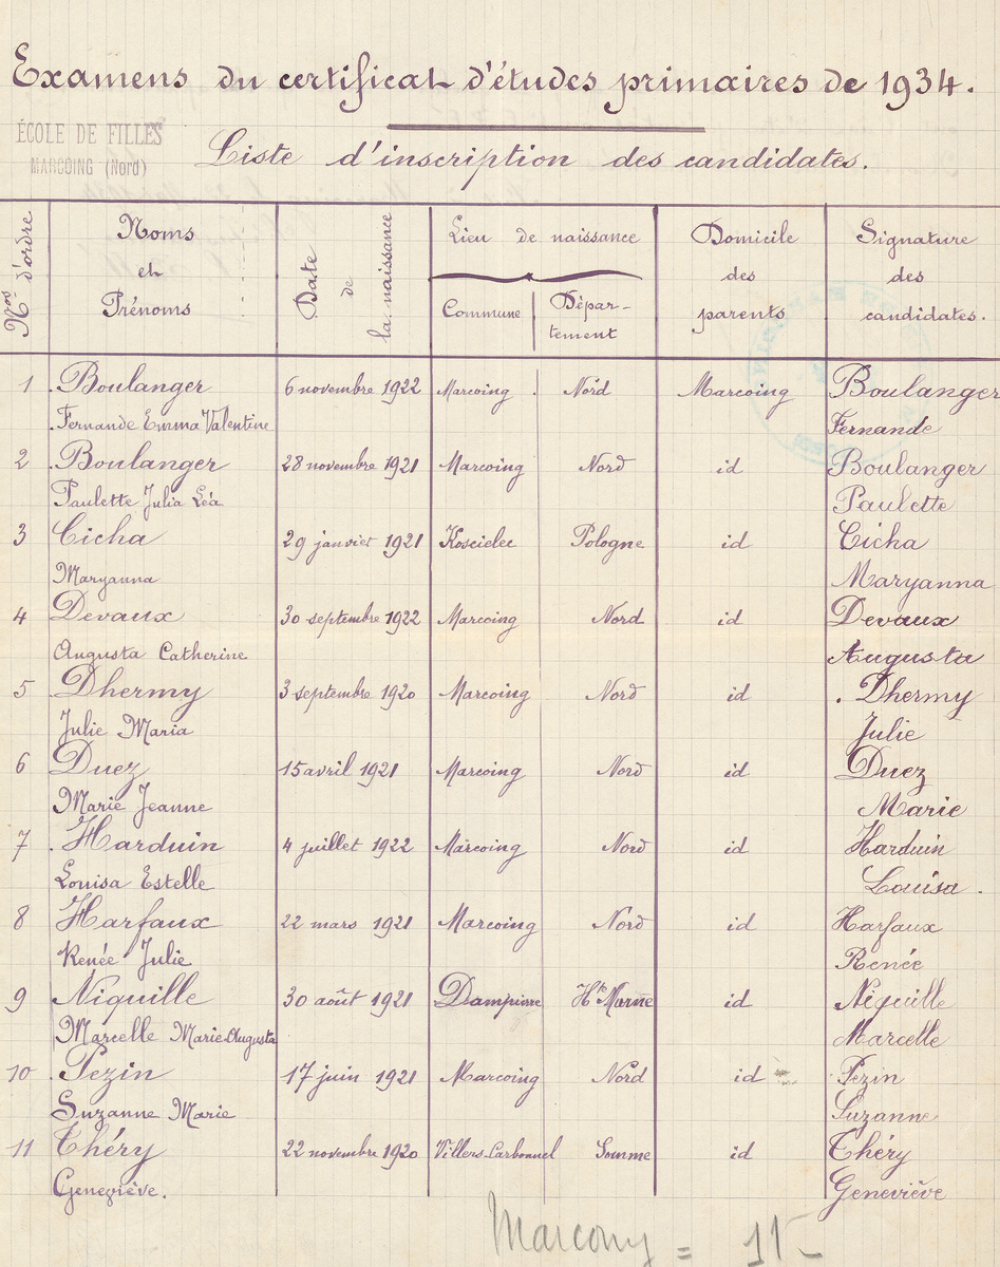 Examens du certificat d'études primaires de 1934.
ÉCOLE DE FILLES
MARCOING (Nord)
Liste d'inscription des candidates.
Nos d'ordre
Noms
et
Prénoms
Date
de
la naissance
Lieu de naissance
Commune
Dépar-
tement
Domicile
des
parents
Signature
des
candidates.
1 Boulanger 6 novembre 1922 Marcoing Nord Marcoing Boulanger
Fernande Emma Valentine Fernande
2 Boulanger 28 novembre 1921 Marcoing Nord id Boulanger
Paulette Julia Léa Paulette
3 Cicha 29 janvier 1921 Koscielec Pologne id Cicha
Maryanna Maryanna
4 Devaux 30 septembre 1922 Marcoing Nord id Devaux
Augusta Catherine Augusta
5 Dhermy 3 septembre 1920 Marcoing Nord id Dhermy
Julie Maria Julie
6 Duez 15 avril 1921 Marcoing Nord id Duez
Marie Jeanne Marie
7 Harduin 4 juillet 1922 Marcoing Nord id Harduin
Louisa Estelle Louisa.
8 Harfaux 22 mars 1921 Marcoing Nord id Harfaux
Renée Julie Renée
9 Niquille 30 août 1921 Dampierre Hte Marne id Niquille
Marcelle Marie-Augusta Marcelle
10 Pezin 17 juin 1921 Marcoing Nord id Pezin
Suzanne Marie Suzanne
11 Théry 22 novembre 1920 Villers-Carbonnel Somme id Théry
Geneviève. Geneviève
Marcoing = 11-